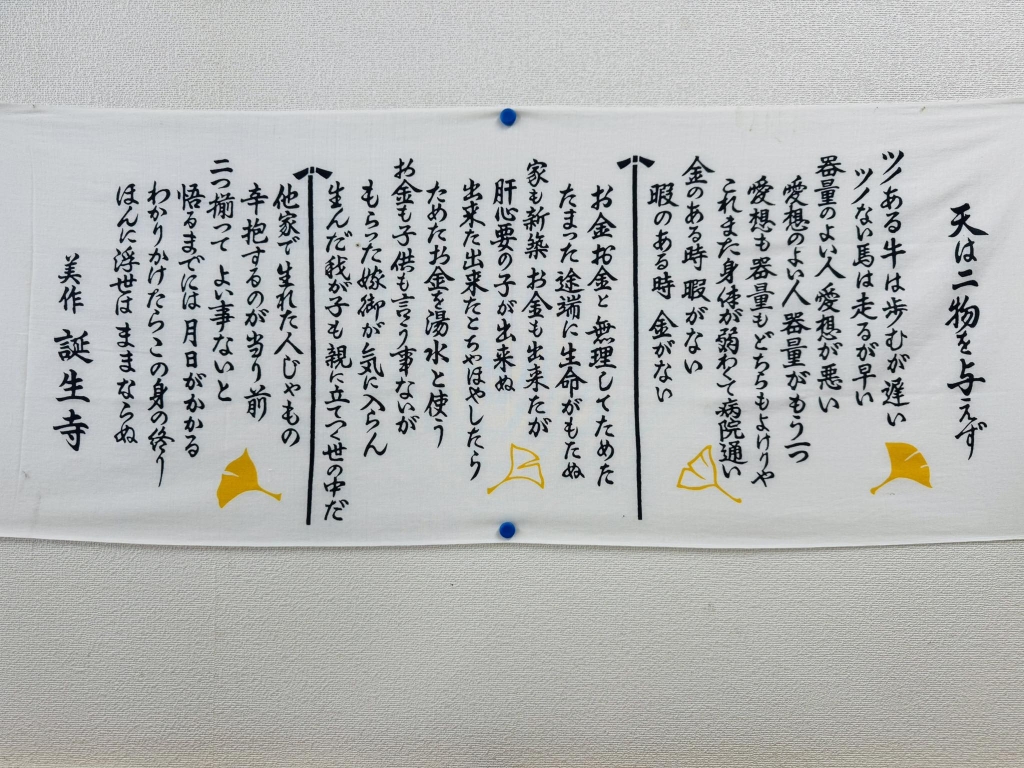 天は二物を与えず
ツノある牛は歩むが遅い
ツノない馬は走るが早い
器量のよい人愛想が悪い
愛想のよい人器量がもう一つ
愛想も器量もどちらもよけりや
これまた身体が弱わて病院通い
金のある時 暇がない
暇のある時 金がない
お金お金と無理してためた
たまった途端に生命がもたぬ
家も新築 お金も出来たが
肝心要の子が出来ぬ
出来た出来たとちやほやしたら
ためたお金を湯水と使う
お金も子供も言う事ないが
もらった嫁御が気に入らん
生んだ我が子も親に立てつく世の中だ
他家で生れた人じゃもの
辛抱するのが当り前
二つ揃って よい事ないと
悟るまでには 月日がかかる
わかりかけたらこの身の終り
ほんに浮世は ままならぬ
美作 誕生寺